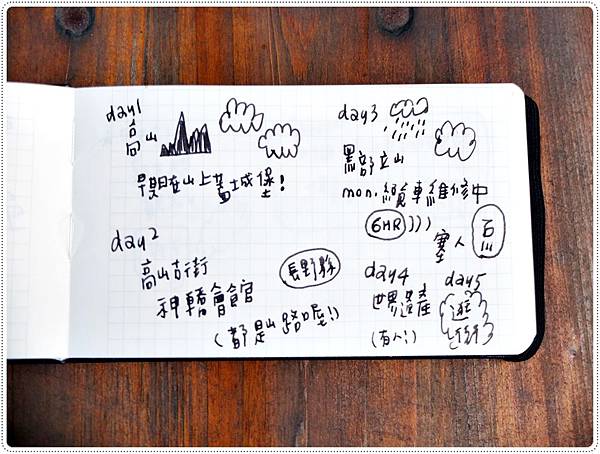 day1
高山
早期在山上蓋城堡!
day2
高山古街
神轎會館
長野縣
(都是山路喔!)
day3
黑部立山
mon.纜車維修中
6HR )))
塞人
day4
世界遺產
day5
逛街